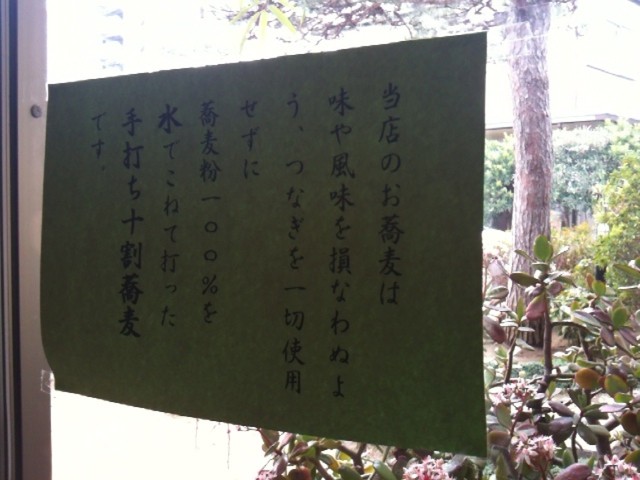 当店のお蕎麦は
味や風味を損なわぬよ
う、つなぎを一切使用
せずに
蕎麦粉一〇〇%を
水でこねて打った
手打ち十割蕎麦
です。